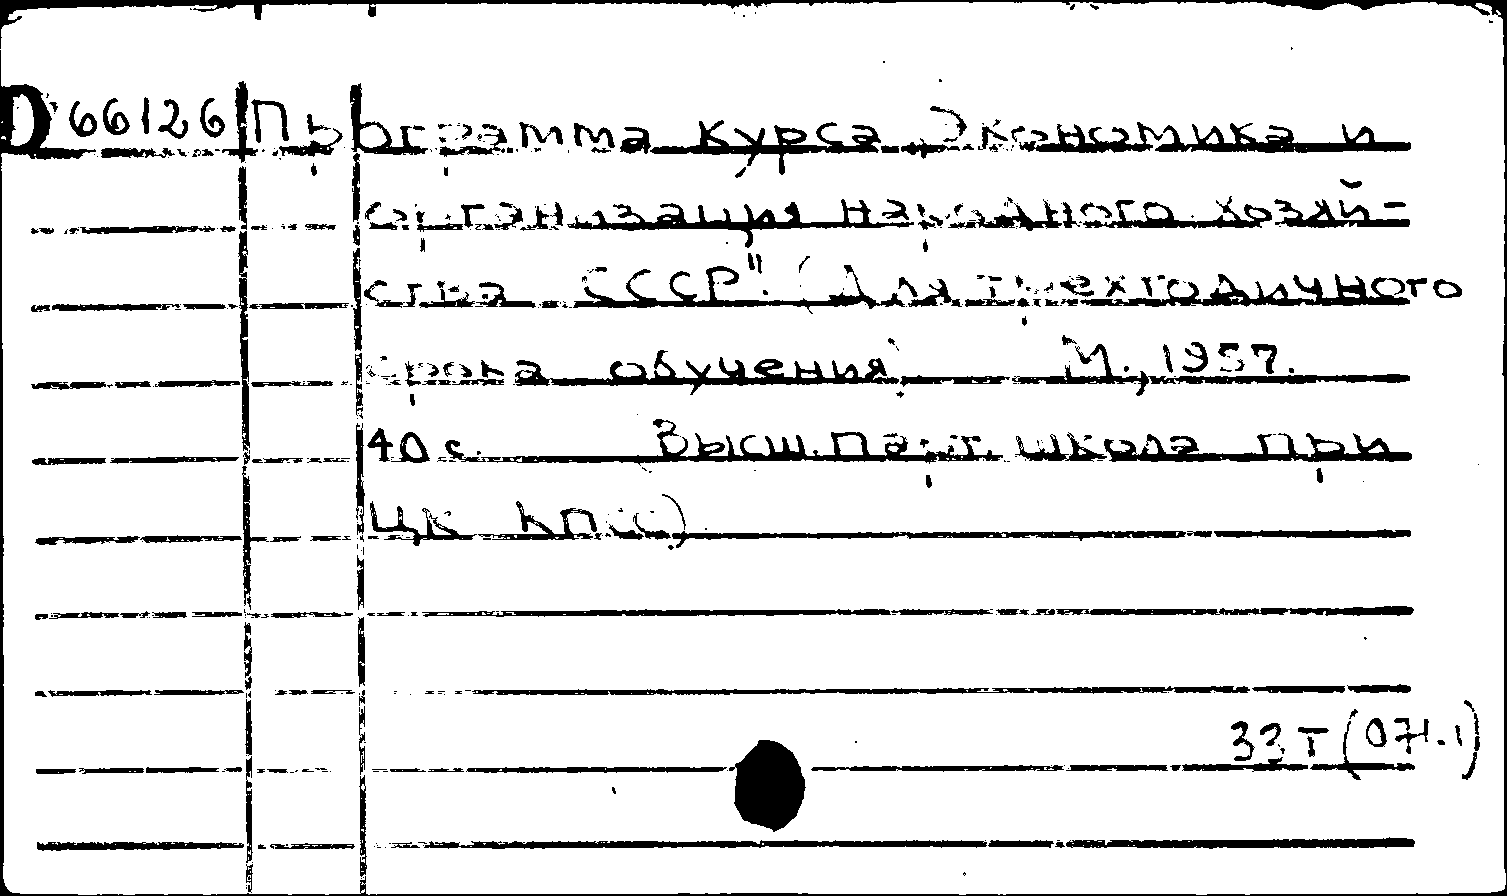 D 66126 Программа курса „Экономика и
организация народного хозяй-
ства СССР". (Для трехгодичного
срока обучения). М., 1957.
40 с. Высш. парт. школа при
ЦК КПСС)
33Т(071.1)